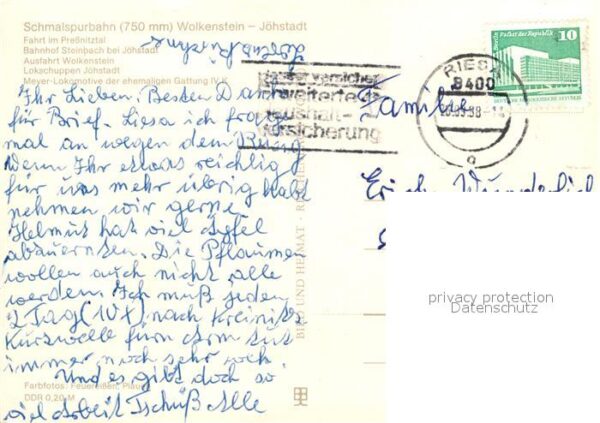 Schmalspurbahn (750 mm) Wolkenstein – Jöhstadt
Fahrt im Preßnitztal
Bahnhof Steinbach bei Jöhstadt
Ausfahrt Wolkenstein
Lokschuppen Jöhstadt
Meyer-Lokomotive der ehemaligen Gattung IV K
Ihr Lieben. Besten Dank
für Brief. Lisa ich frag
mal an wegen dem
Wenn Ihr etwas reichlig
für uns mehr übrig habt
nehmen wir gerne
Helmut hat viel Äpfel
abauernten. Die Pflaumen
wollen auch nicht alle
werden. Ich muß jeden
2 Tag (10x) nach
Kurzwelle fürn Arm tut
immer noch sehr weh
Und es gibt doch so
viel Arbeit Tschüß Alle
Farbfotos: Feuereißen, Plauen
DDR 0,20 M
BILD UND HEIMAT
erweiterte
Haushalt-
versicherung
RIESA
8400
Berlin Palast der Republik
10
Familie
Erich Wunderlich
privacy protection
Datenschutz